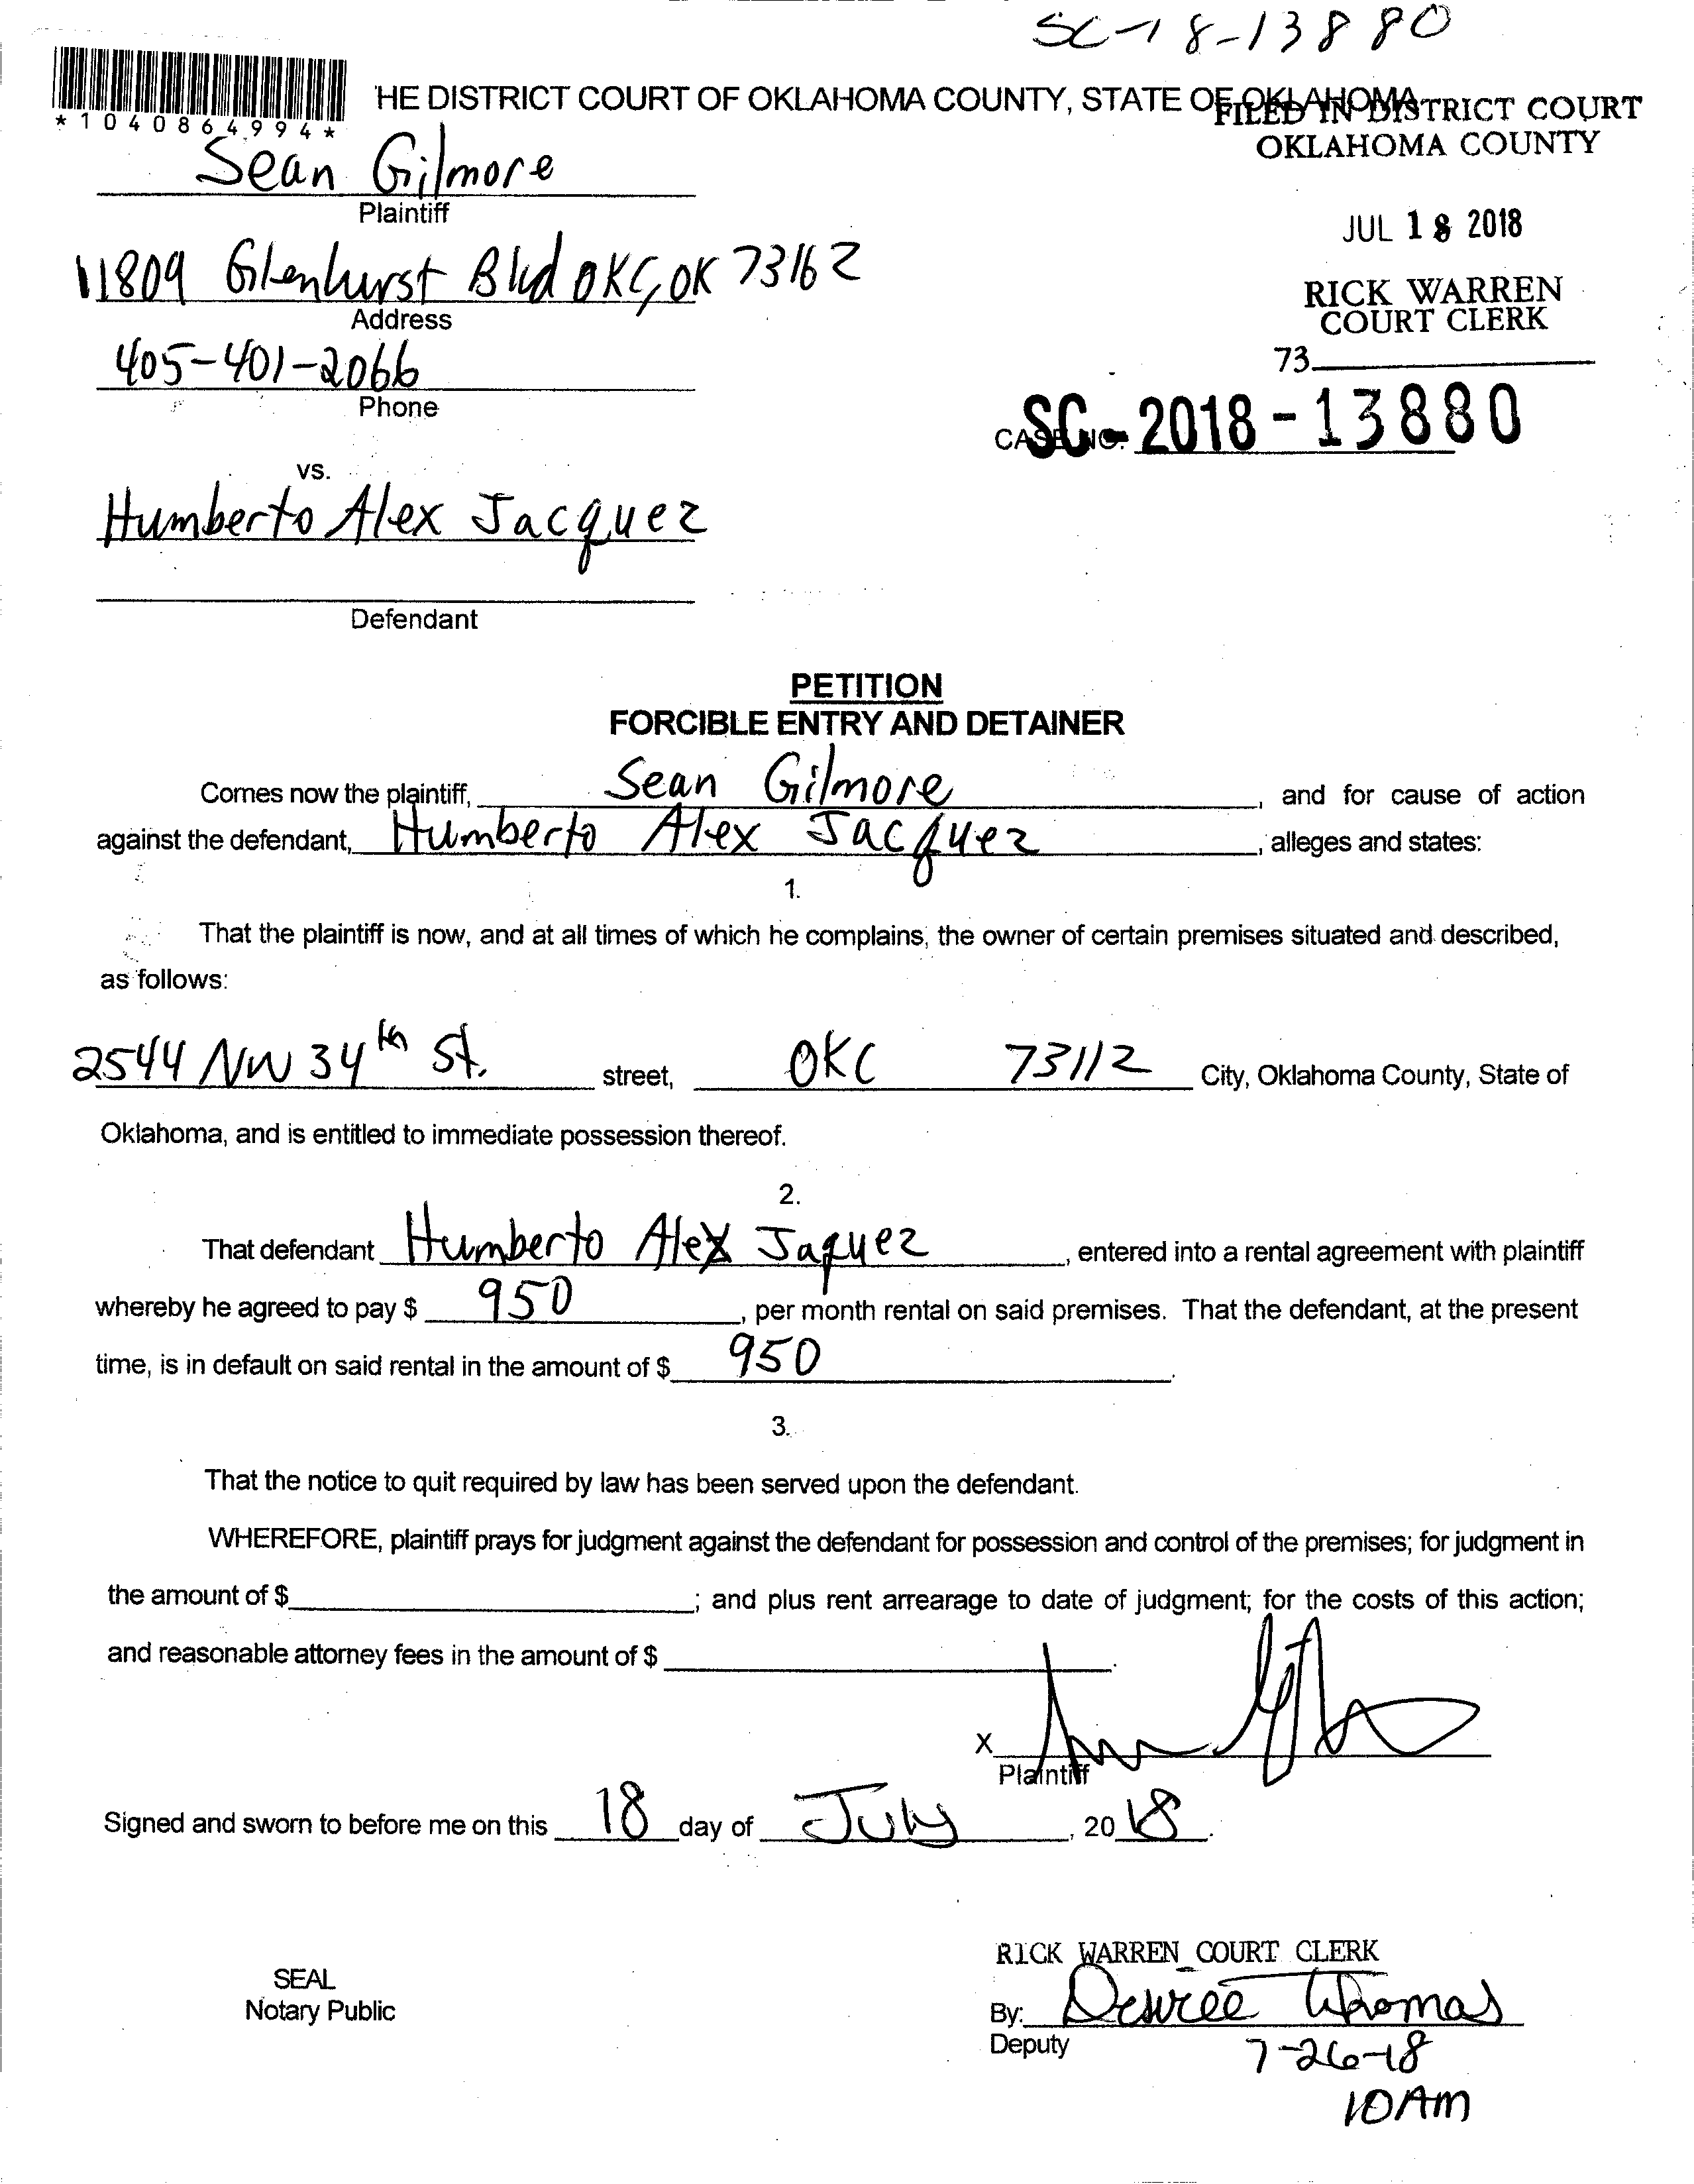 SC-18-13880
*1040864994*
HE DISTRICT COURT OF OKLAHOMA COUNTY, STATE OF OKLAHOMA
FILED IN DISTRICT COURT
OKLAHOMA COUNTY
Sean Gilmore
Plaintiff
JUL 18 2018
11809 Glenhurst Blvd OKC, OK 73162
Address
RICK WARREN
COURT CLERK
405-401-2066
Phone
73
CASE NO. SC-2018-13880
vs.
Humberto Alex Jacquez
Defendant
PETITION
FORCIBLE ENTRY AND DETAINER
Comes now the plaintiff, Sean Gilmore, and for cause of action
against the defendant, Humberto Alex Jacquez, alleges and states:
1.
That the plaintiff is now, and at all times of which he complains, the owner of certain premises situated and described,
as follows:
2544 NW 34th St. street, OKC 73112 City, Oklahoma County, State of
Oklahoma, and is entitled to immediate possession thereof.
2.
That defendant Humberto Alex Jaquez, entered into a rental agreement with plaintiff
whereby he agreed to pay $ 950, per month rental on said premises. That the defendant, at the present
time, is in default on said rental in the amount of $ 950.
3.
That the notice to quit required by law has been served upon the defendant.
WHEREFORE, plaintiff prays for judgment against the defendant for possession and control of the premises; for judgment in
the amount of $ ; and plus rent arrearage to date of judgment; for the costs of this action;
and reasonable attorney fees in the amount of $ .
X
Plaintiff
Signed and sworn to before me on this 18 day of July, 2018.
RICK WARREN COURT CLERK
SEAL
Notary Public
By: Desiree Thomas
Deputy
7-26-18
10AM